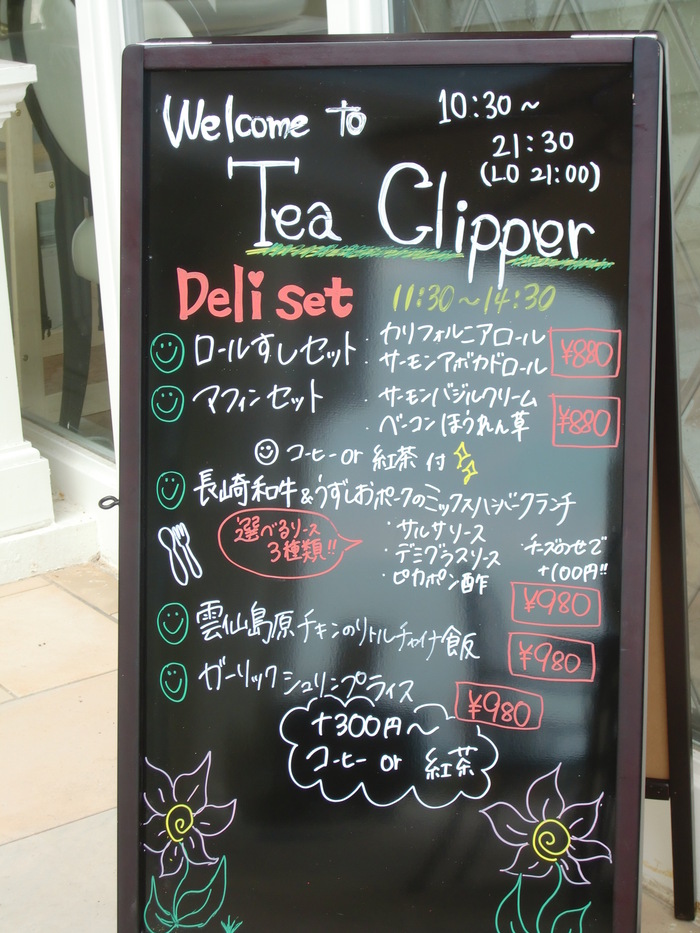 Welcome to
10:30~
21:30
(LO 21:00)
Tea Clipper
Deli set 11:30~14:30
ロールすしセット ・カリフォルニアロール
・サーモンアボカドロール
¥880
マフィンセット ・サーモンバジルクリーム
・ベーコンほうれん草
¥880
コーヒー or 紅茶 付
長崎和牛&うずしおポークのミックスハンバーグランチ
選べるソース
3種類!!
・サルサソース
・デミグラスソース
・ピカポン酢
・チーズのせで
+100円!!
¥980
雲仙島原チキンのリトルチャイナ飯
¥980
ガーリックシュリンプライス
¥980
+300円~
コーヒー or 紅茶